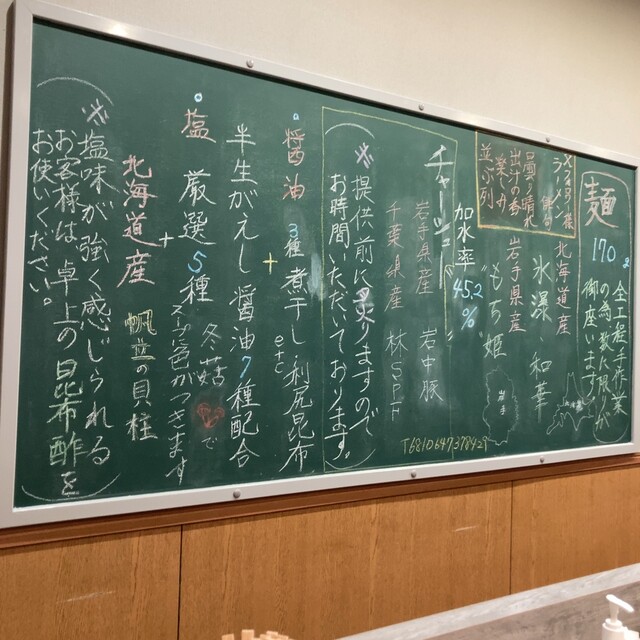 麺 170g
全工程手作業
の為、数に限りが
御座います。
北海道産
氷瀑・和華
岩手県産
もち姫
岩手
加水率
45.2
%
曇り晴れ
出汁の香
楽しみ
並ぶ列
チャーシュー
岩手県産 岩中豚
千葉県産 林SPF
※提供前に炙りますので
お時間いただいております。
醤油 3種煮干し 利尻昆布
etc
+
半生がえし 醤油7種配合
塩 厳選5種 冬菇で
スープに色がつきます
+
北海道産 帆立の貝柱
※塩味が強く感じられる
お客様は卓上の昆布酢を
お使いください。